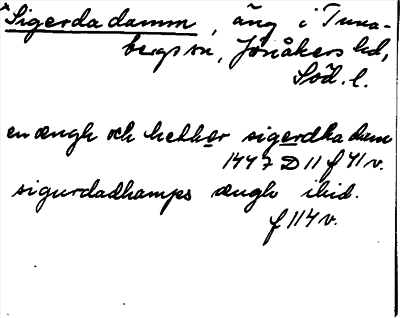 *Sigerda damm, äng i Tuna-
bergs sn, Jönåkers hd,
Söd. l.
en ængh och hether sigerdha dam
1447 D 11 f 41 v.
sigurdadhamps ængh ibid.
f 114 v.